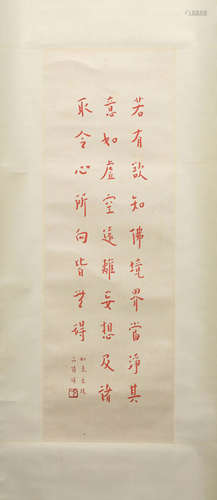 若有欲知佛境界當淨其
意如虛空遠離妄想及諸
取令心所向皆無碍